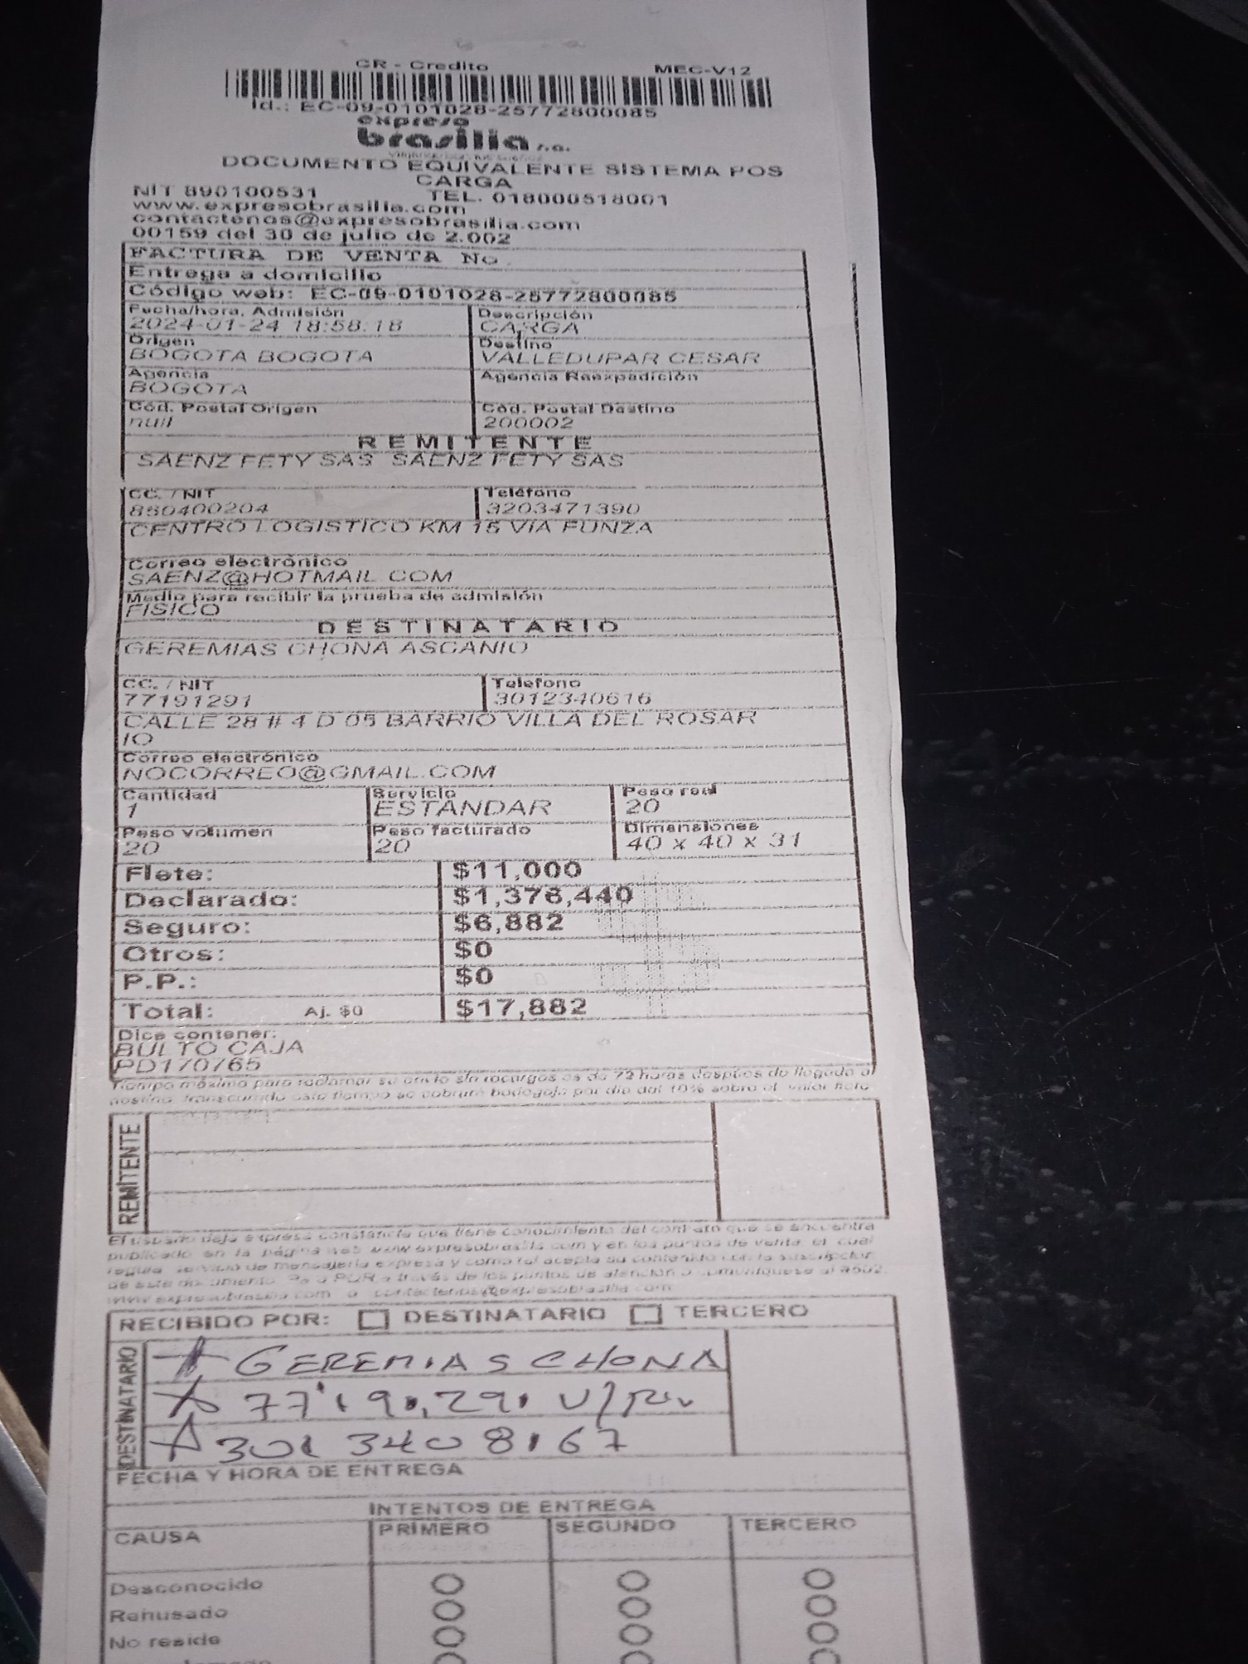 CR - Credito MEC-V12
Id.: EC-09-0101028-25772800085
expreso
brasilia s.a.
DOCUMENTO EQUIVALENTE SISTEMA POS
CARGA
NIT 890100531 TEL. 018000518001
www.expresobrasilia.com
contactenos@expresobrasilia.com
00159 del 30 de julio de 2.002
FACTURA DE VENTA No
Entrega a domicilio
Código web: EC-09-0101028-25772800085
Fecha/hora. Admisión Descripción
2024-01-24 18:58:18 CARGA
Origen Destino
BOGOTA BOGOTA VALLEDUPAR CESAR
Agencia Agencia Reexpedición
BOGOTA
Cód. Postal Origen Cód. Postal Destino
null 200002
REMITENTE
SAENZ FETY SAS SAENZ FETY SAS
CC. / NIT Teléfono
860400204 3203471390
CENTRO LOGISTICO KM 15 VIA FUNZA
Correo electrónico
SAENZ@HOTMAIL.COM
Medio para recibir la prueba de admisión
FISICO
DESTINATARIO
GEREMIAS CHONA ASCANIO
CC. / NIT Telefono
77191291 3012340616
CALLE 28 # 4 D 05 BARRIO VILLA DEL ROSAR
IO
Correo electrónico
NOCORREO@GMAIL.COM
Cantidad Servicio Peso real
1 ESTANDAR 20
Peso volumen Peso facturado Dimensiones
20 20 40 x 40 x 31
Flete: $11,000
Declarado: $1,376,440
Seguro: $6,882
Otros: $0
P.P.: $0
Total: Aj. $0 $17,882
Dice contener:
BULTO CAJA
PD170765
Tiempo máximo para reclamar su envio sin recargos es de 72 horas después de llegado a
destino. Transcurrido este tiempo se cobrara bodegaje por dia del 10% sobre el valor flete
REMITENTE
El usuario deja expresa constancia que tiene conocimiento del contrato que se encuentra
publicado en la página web www.expresobrasilia.com y en los puntos de venta, el cual
regula servicio de mensajería expresa y como tal acepta su contenido con la suscripción
de este documento. Para PQR a través de los puntos de atención o comuníquese al #502
www.expresobrasilia.com o contactenos@expresobrasilia.com
RECIBIDO POR: DESTINATARIO TERCERO
DESTINATARIO
GEREMIAS CHONA
77'191,291 V/
301 3408167
FECHA Y HORA DE ENTREGA
INTENTOS DE ENTREGA
CAUSA PRIMERO SEGUNDO TERCERO
Desconocido
Rehusado
No reside